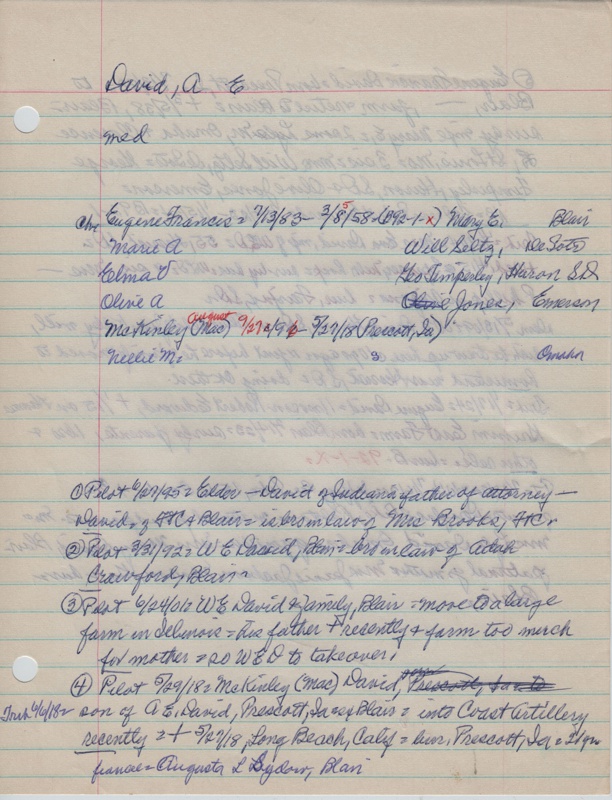 David, A E
med
Chr Eugene Francis = 7/13/83 - 3/8/58 = (892-1-x) Mary E. Blair
Marie A Will Seltz, De Soto
Elma V Geo Timperley, Huron S.D
Olive A Jones, Emerson
McKinley (Mac) August 9/27 - 5/27/18 (Prescott, Ia)
Nellie M. Omaha
① Pilot 6/27/95 = Elder - David of Indiana father of attorney -
David, of FtC & Blair = is bro in law of Mrs Brooks, FtC.
② Pilot 3/31/92 = W E David, Blair = bro in law of Adah
Crawford, Blair
③ Pilot 6/24/01 = W E David & family, Blair = move to a large
farm in Illinois = his father + recently & farm too much
for mother = so W E D to takeover.
④ Pilot 5/29/18 = McKinley (Mac) David, Prescott,
Trib 6/6/18 = son of A E. David, Prescott, Ia ex Blair = into Coast Artillery
recently = + 5/27/18, Long Beach, Calif = bur. Prescott, Ia = 21 yrs
fiancee = Augusta L Lydow, Blair